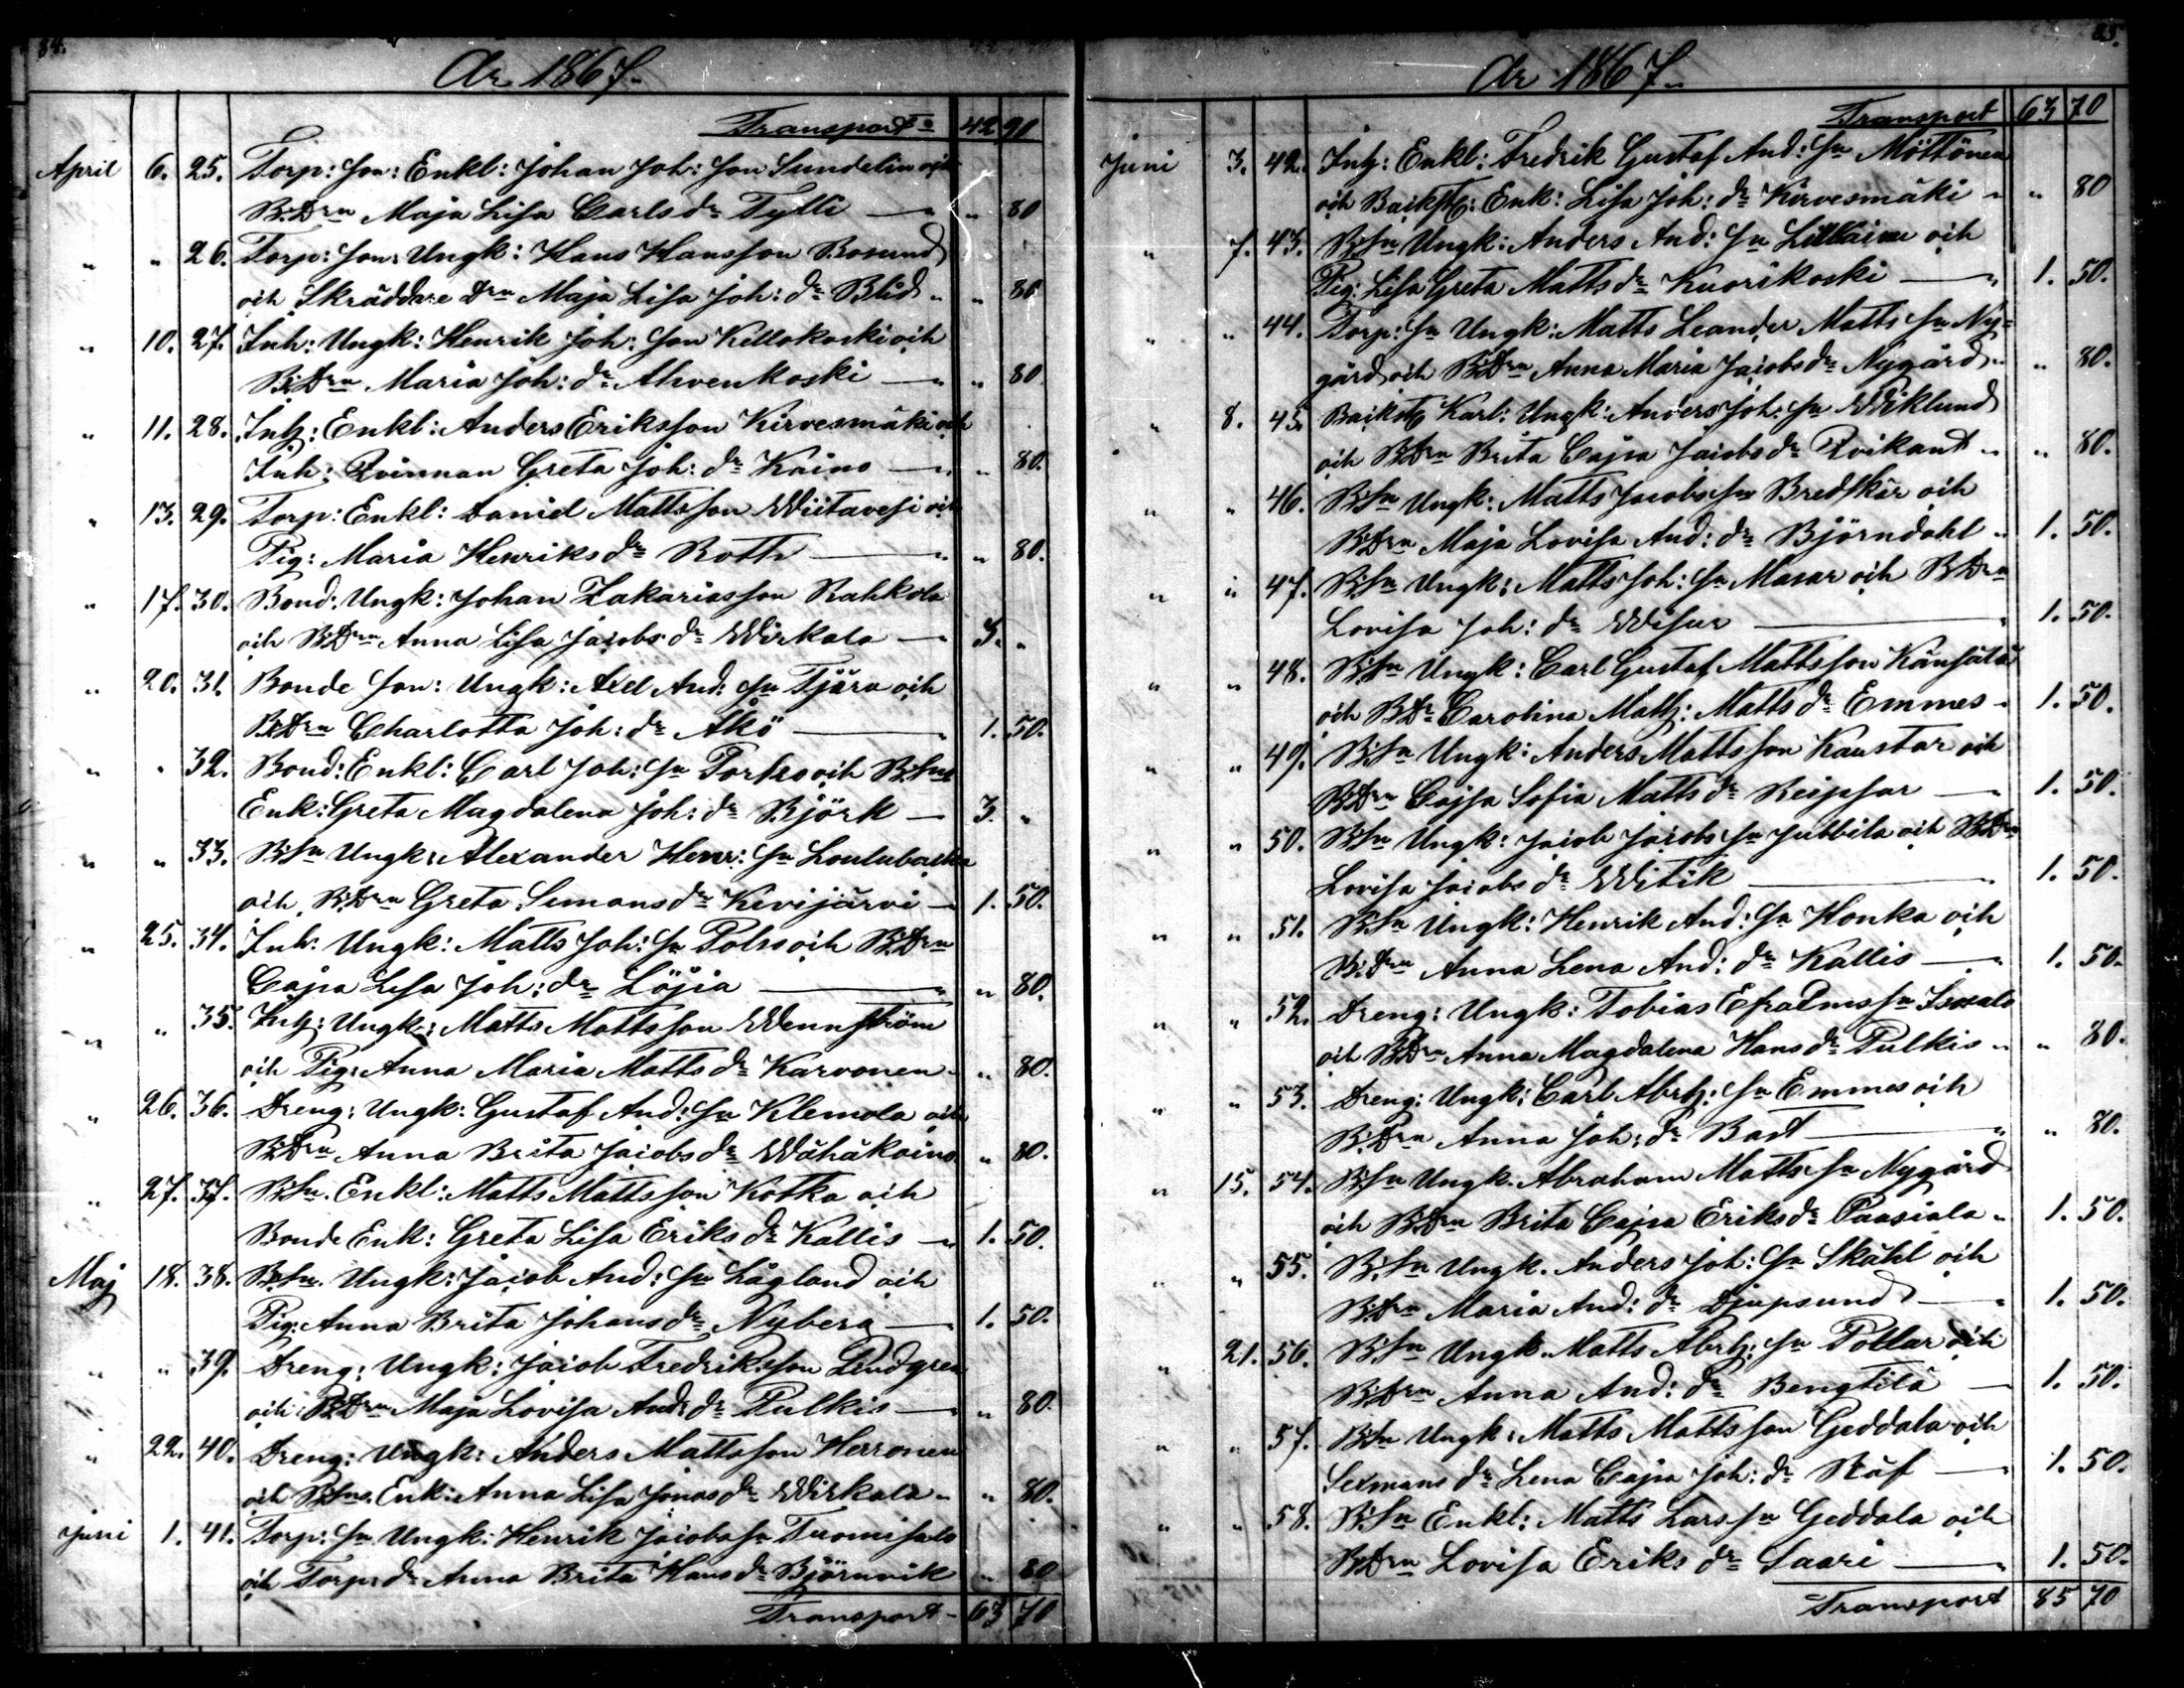 84.
År 1867.
Transport 42 90
April 6. 25. Torp: Son: Enkl: Johan Joh: Son Sundelin och
B:Drn Maja Lisa Carls dr Tylli — " 80
" " 26. Torp: Son: Ungk: Hans Hansson Bosund
och Skräddare Drn Maja Lisa Joh: dr Blid " " 80
" 10. 27. Inh: Ungk: Henrik Joh: Son Killokoski och
B:Drn Maria Joh: dr Ahvenkoski — " 80
" 11. 28. Inh: Enkl: Anders Eriksson Kirvesmäki och
Inh: Qvinnan Greta Joh: dr Kaino — " 80.
" 13. 29. Torp: Enkl: Daniel Mattsson Wiitavesi och
Pig: Maria Henriks dr Roth — " 80.
" 17. 30. Bond: Ungk: Johan Zakariasson Rahkola
och B:Drn Anna Lisa Jacobs dr Wirkala — 3. "
" 20. 31. Bonde Son: Ungk: Axel And: Sn Tjäru och
B:Drn Charlotta Joh: dr Åkö — 1. 50.
" " 32. Bond: Enkl: Carl Joh: Sn och B:Sns
Enk: Greta Magdalena Joh: dr Björk — 3. "
" " 33. B:Sn Ungk: Alexander Henr: Sn Loulubacka
och B:Drn Greta Simons dr Kivijärvi — 1. 50.
" 25. 34. Inh: Ungk: Matts Joh: Sn Polso och B:Drn
Cajsa Lisa Joh: dr Löjia — " 80.
" " 35. Inh: Ungk: Matts Mattsson Wennström
och Pig: Anna Maria Matts dr Karvonen " 80.
" 26. 36. Dreng: Ungk: Gustaf And: Sn Klemola och
B:Drn Anna Brita Jacobs dr Wähäkainu " 80.
" 27. 37. B:Sn Enkl: Matts Mattsson Kotka och
Bonde Enk: Greta Lisa Eriks dr Kallis — 1. 50.
Maj 18. 38. B:Sn Ungk: Jacob And: Sn Lågland och
Pig: Anna Brita Johans dr Nyberg — 1. 50.
" " 39. Dreng: Ungk: Jacob Fredriksson Lindgren
och B:Drn Maja Lovisa And: dr Pulkis — " 80.
" 22. 40. Dreng: Ungk: Anders Mattsson Herronen
och B:Sns Enk: Anna Lisa Jonas dr Wirkala " " 80.
Juni 1. 41. Torp: Sn Ungk: Henrik Jacobs Sn Tuomisalo
och Torp: dr Anna Brita Hans dr Björnvik " 80
Transport 63 70
85.
År 1867.
Transport 63 70
Juni 3. 42. Inh: Enkl: Fredrik Gustaf And: Sn Möttönen
och Backst: Enk: Lisa Joh: dr Kirvesmäki " " 80
" 7. 43. B:Sn Ungk: Anders And: Sn och
Pig: Lisa Greta Matts dr Kuorikoski — 1. 50.
" " 44. Torp: Sn Ungk: Matts Leander Matts Sn Ny=
gård och B:Drn Anna Maria Jacobs dr Nygård " " 80.
" 8. 45. Backst: Karl: Ungk: Anders Joh: Sn Wiklund
och B:Drn Brita Cajsa Jacobs dr Qvikant " " 80.
" " 46. B:Sn Ungk: Matts Jacobs Sn Bredskär och
B:Drn Maja Lovisa And: dr Björndahl " 1. 50.
" " 47. B:Sn Ungk: Matts Joh: Sn Masar och B:Drn
Lovisa Joh: dr Wisur — 1. 50.
" " 48. B:Sn Ungk: Carl Gustaf Mattsson Känsälä
och B:Dr Carolina Math: Matts dr Emmes " 1. 50.
" " 49. B:Sn Ungk: Anders Mattsson Kaustar och
B:Drn Cajsa Sofia Matts dr Reipsar — 1. 50.
" " 50. B:Sn Ungk: Jacob Jacobs Sn Jubbila och B:Drn
Lovisa Jacobs dr Witik — 1. 50.
" " 51. B:Sn Ungk: Henrik And: Sn Honka och
B:Drn Anna Lena And: dr Kallis — 1. 50.
" " 52. Dreng: Ungk: Tobias Efraims Sn Isosalo
och B:Drn Anna Magdalena Hans dr Pulkis " " 80.
" " 53. Dreng: Ungk: Carl Abrh: Sn Emmes och
B:Drn Anna Joh: dr Bast — " 80.
" 15. 54. B:Sn Ungk: Abraham Matts Sn Nygård
och B:Drn Brita Cajsa Eriks dr Paasiala " 1. 50.
" " 55. B:Sn Ungk. Anders Joh: Sn Skåhl och
B:Drn Maria And: dr Djupsund — 1. 50.
" 21. 56. B:Sn Ungk. Matts Abrh: Sn Pollar och
B:Drn Anna And: dr Bengtilä — 1. 50.
" " 57. B:Sn Ungk. Matts Mattsson Geddala och
Sexmans dr Lena Cajsa Joh: dr Räf — 1. 50.
" " 58. B:Sn Enkl: Matts Lars Sn Geddala och
B:Drn Lovisa Eriks dr Saari — 1. 50.
Transport 85 70